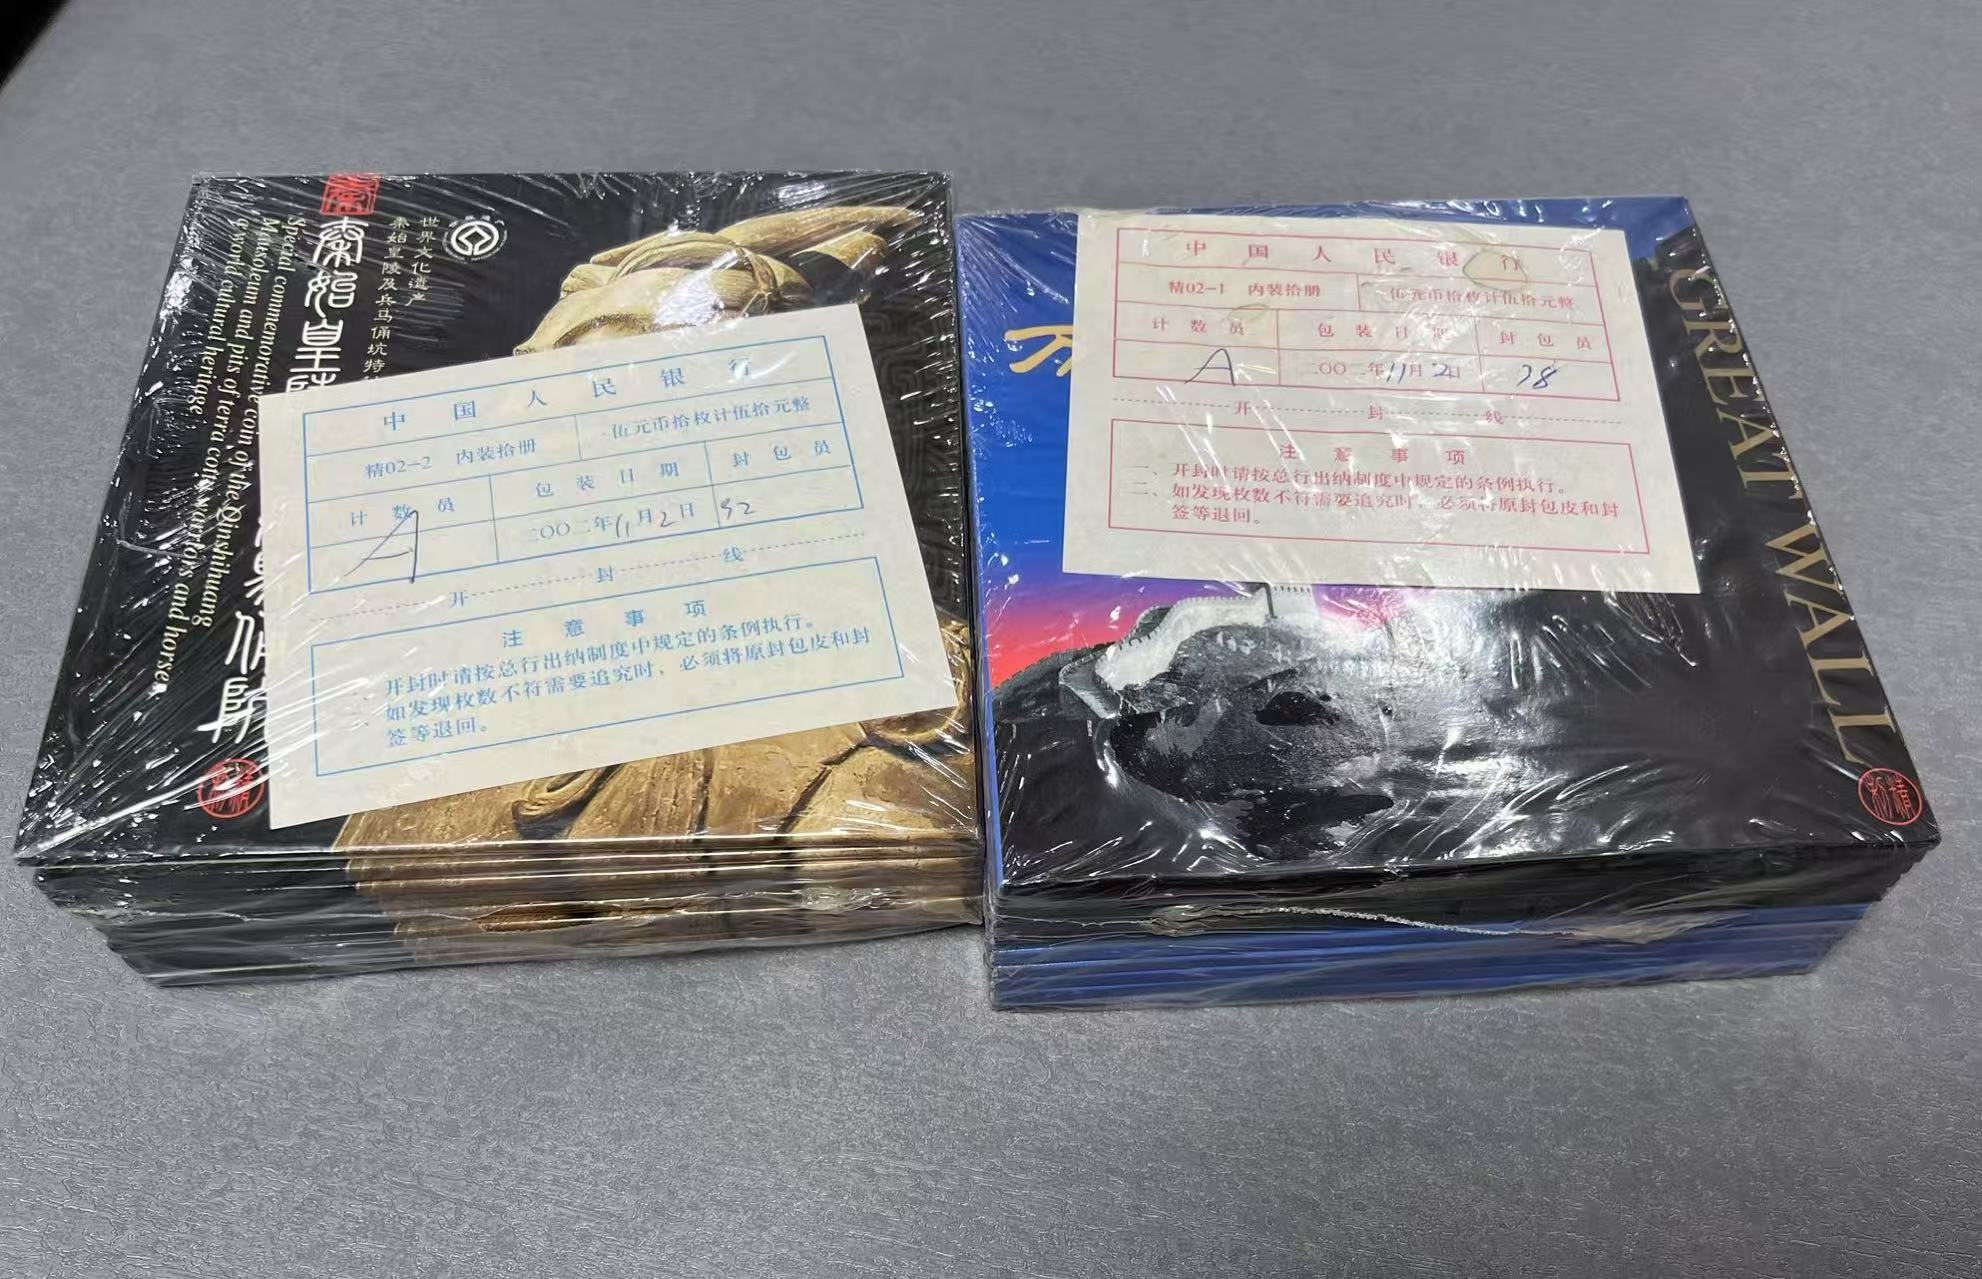 世界文化遗产
秦始皇陵及兵马俑坑特
秦始皇陵
俑
Special commemorative coin of the Qinshihuang
Mausoleum and pits of terra cotta warriors and horses
a world cultural heritage
中国人民银行
精02-2 内装拾册 伍元币拾枚计伍拾元整
计数员 包装日期 封包员
A 二〇〇二年11月2日 92
开封线
注意事项
一、开封时请按总行出纳制度中规定的条例执行。
二、如发现枚数不符需要追究时，必须将原封包皮和封
签等退回。
中国人民银行
精02-1 内装拾册 伍元币拾枚计伍拾元整
计数员 包装日期 封包员
A 二〇〇二年11月2日 98
开封线
注意事项
一、开封时请按总行出纳制度中规定的条例执行。
二、如发现枚数不符需要追究时，必须将原封包皮和封
签等退回。
GREAT WALL